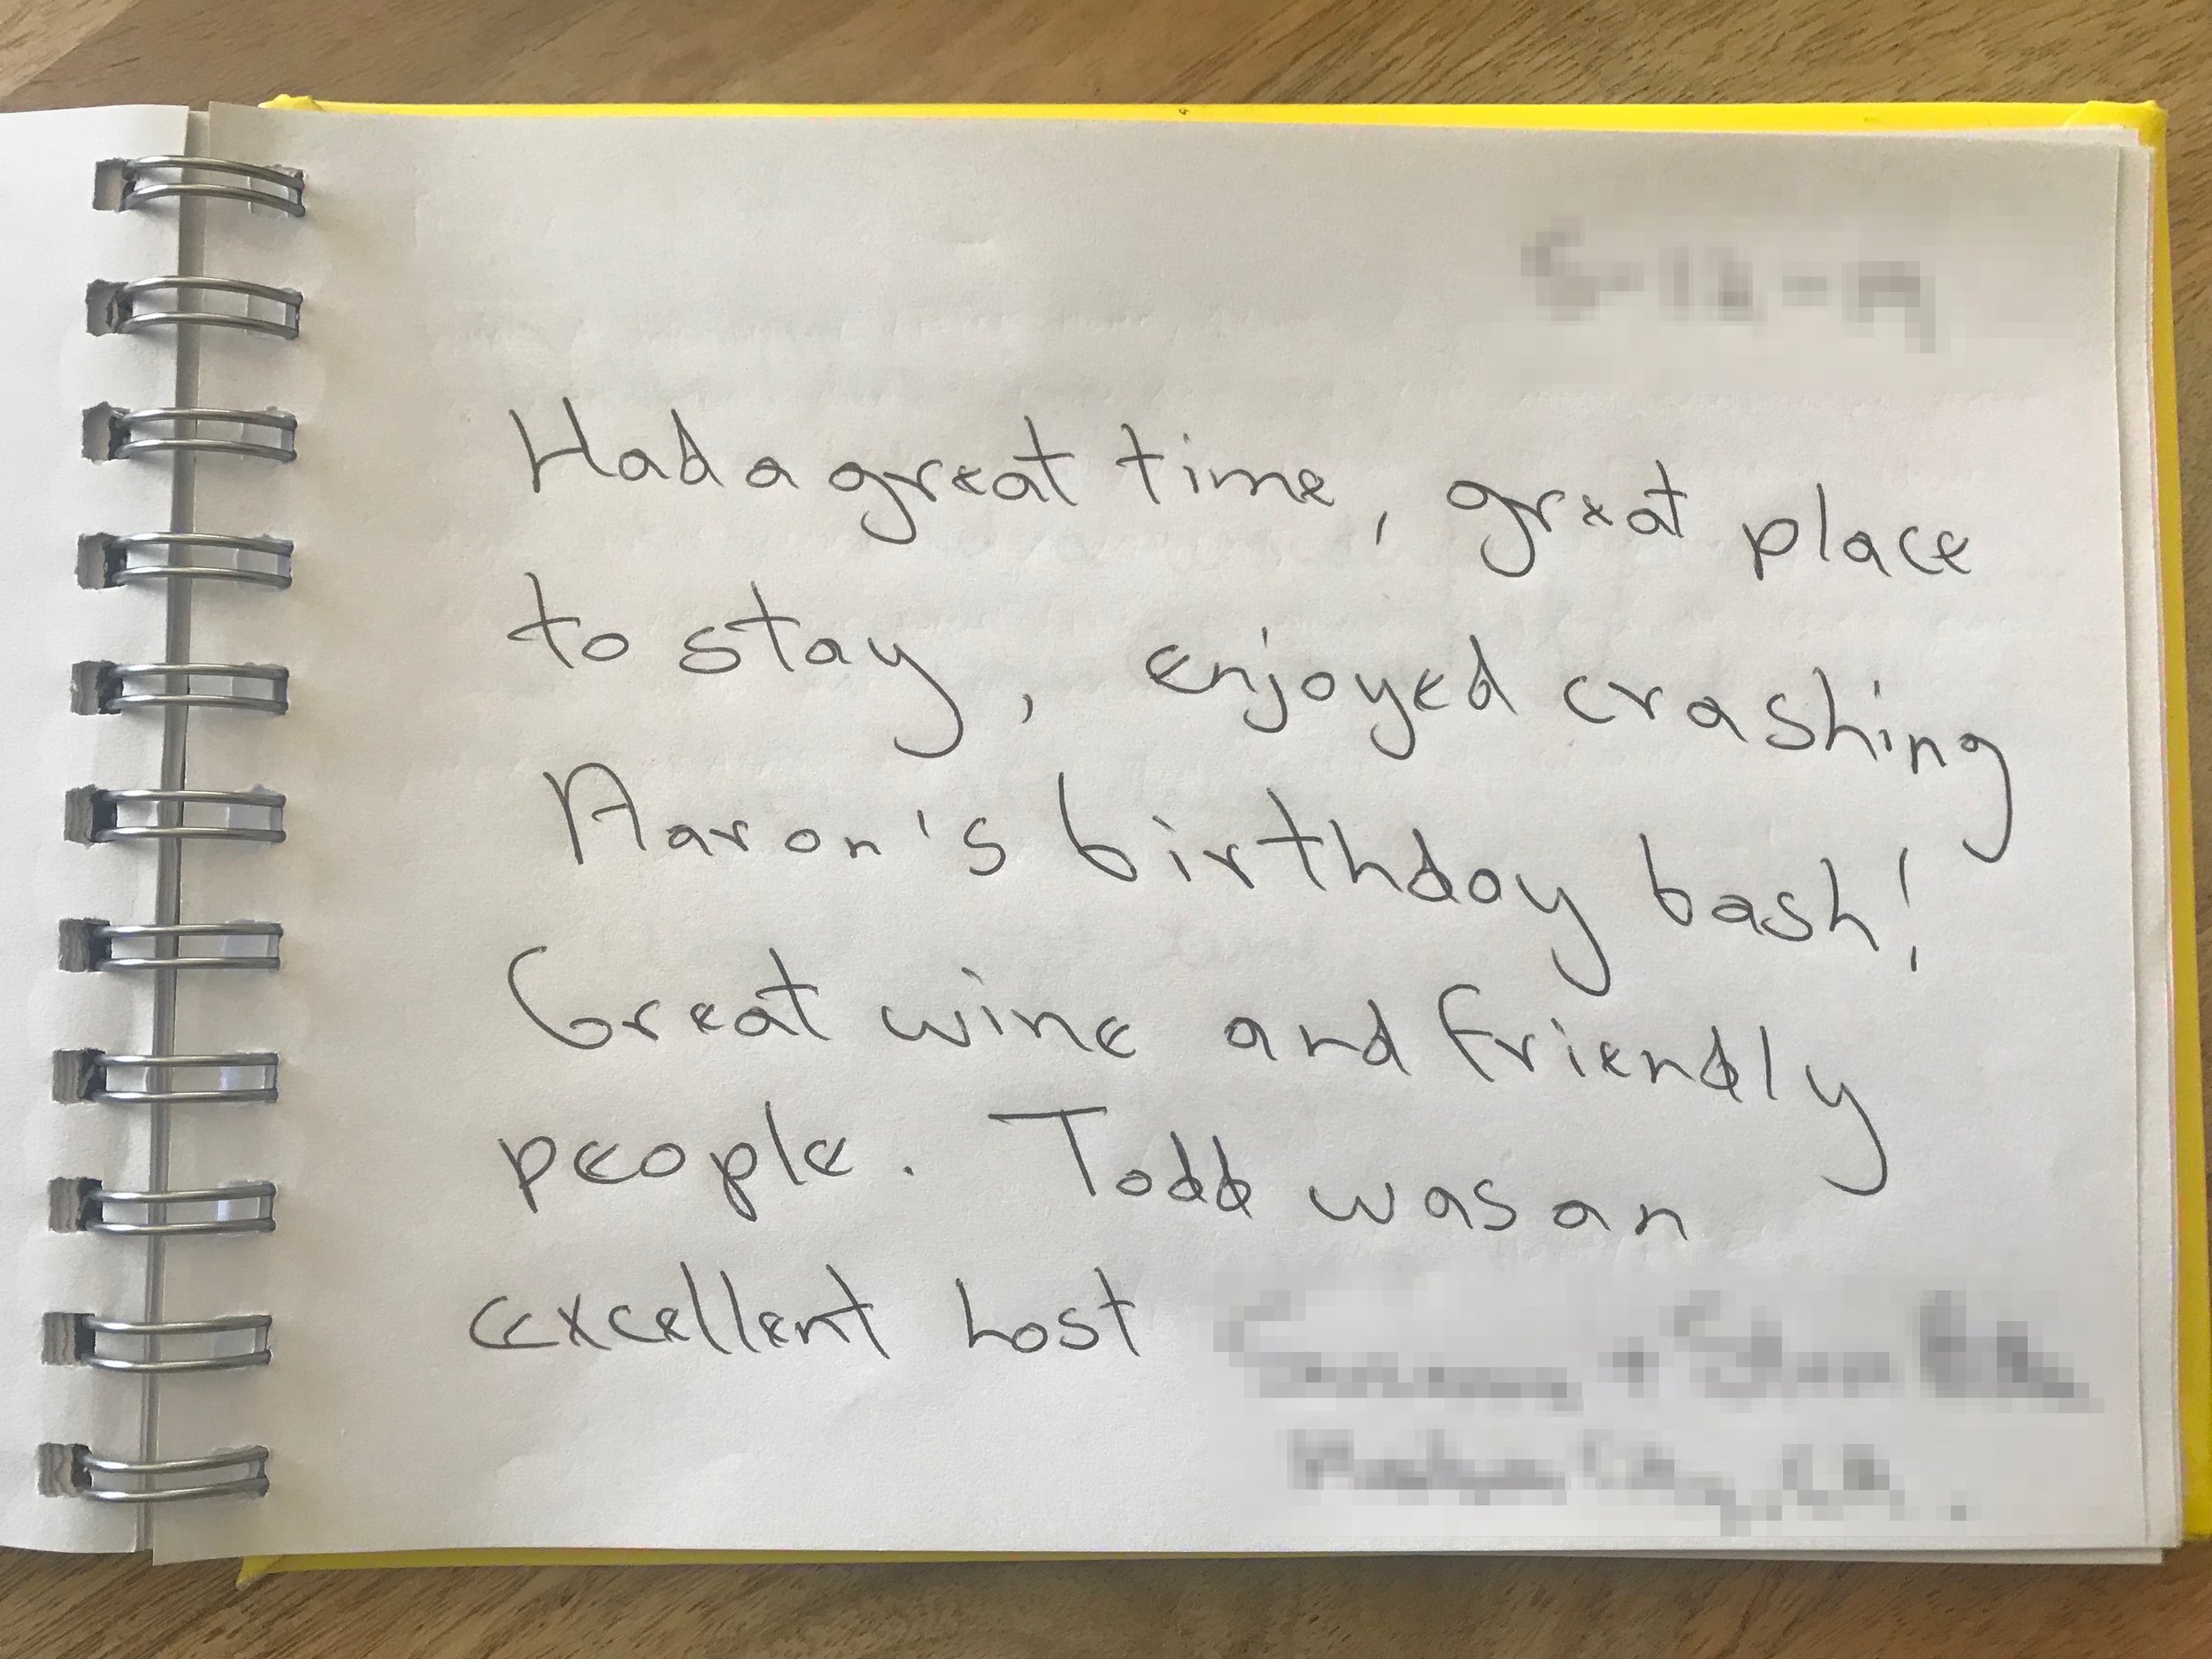 Had a great time, great place
to stay, enjoyed crashing
Aaron's birthday bash!
Great wine and friendly
people. Todd was an
excellent host